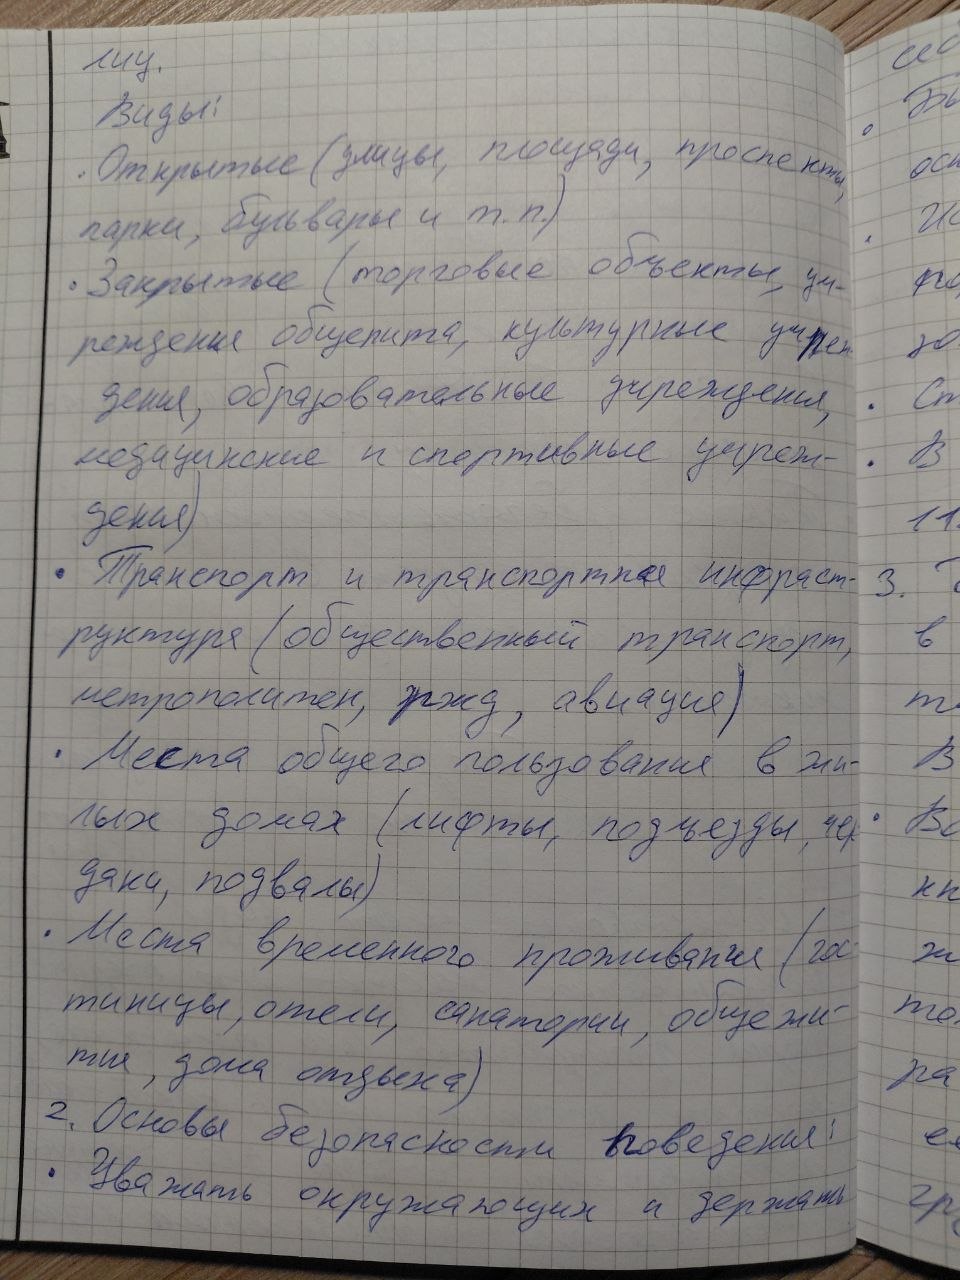 лиц.
Виды:
• Открытые (улицы, площади, проспекты,
парки, бульвары и т.п.)
• Закрытые (торговые объекты, уч-
реждения общепита, культурные учреж
дения, образовательные учреждения,
медицинские и спортивные учреж-
дения)
• Транспорт и транспортная инфраст-
руктура (общественный транспорт,
метрополитен, ржд, авиация)
• Места общего пользования в жи-
лых домах (лифты, подъезды, чер
даки, подвалы)
• Места временного проживания (гос-
тиницы, отели, санатории, общежи-
тия, дома отдыха)
2. Основы безопасности поведения:
• Уважать окружающих и держать
• В
3.
в
В